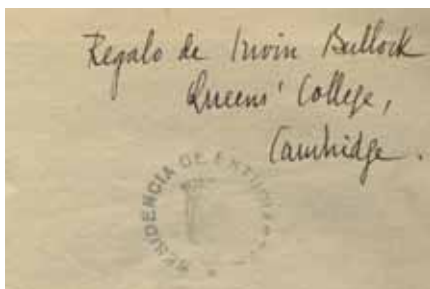 Regalo de Irwin Bullock
Queens' College,
Cambridge.
RESIDENCIA DE ESTUDIANTES